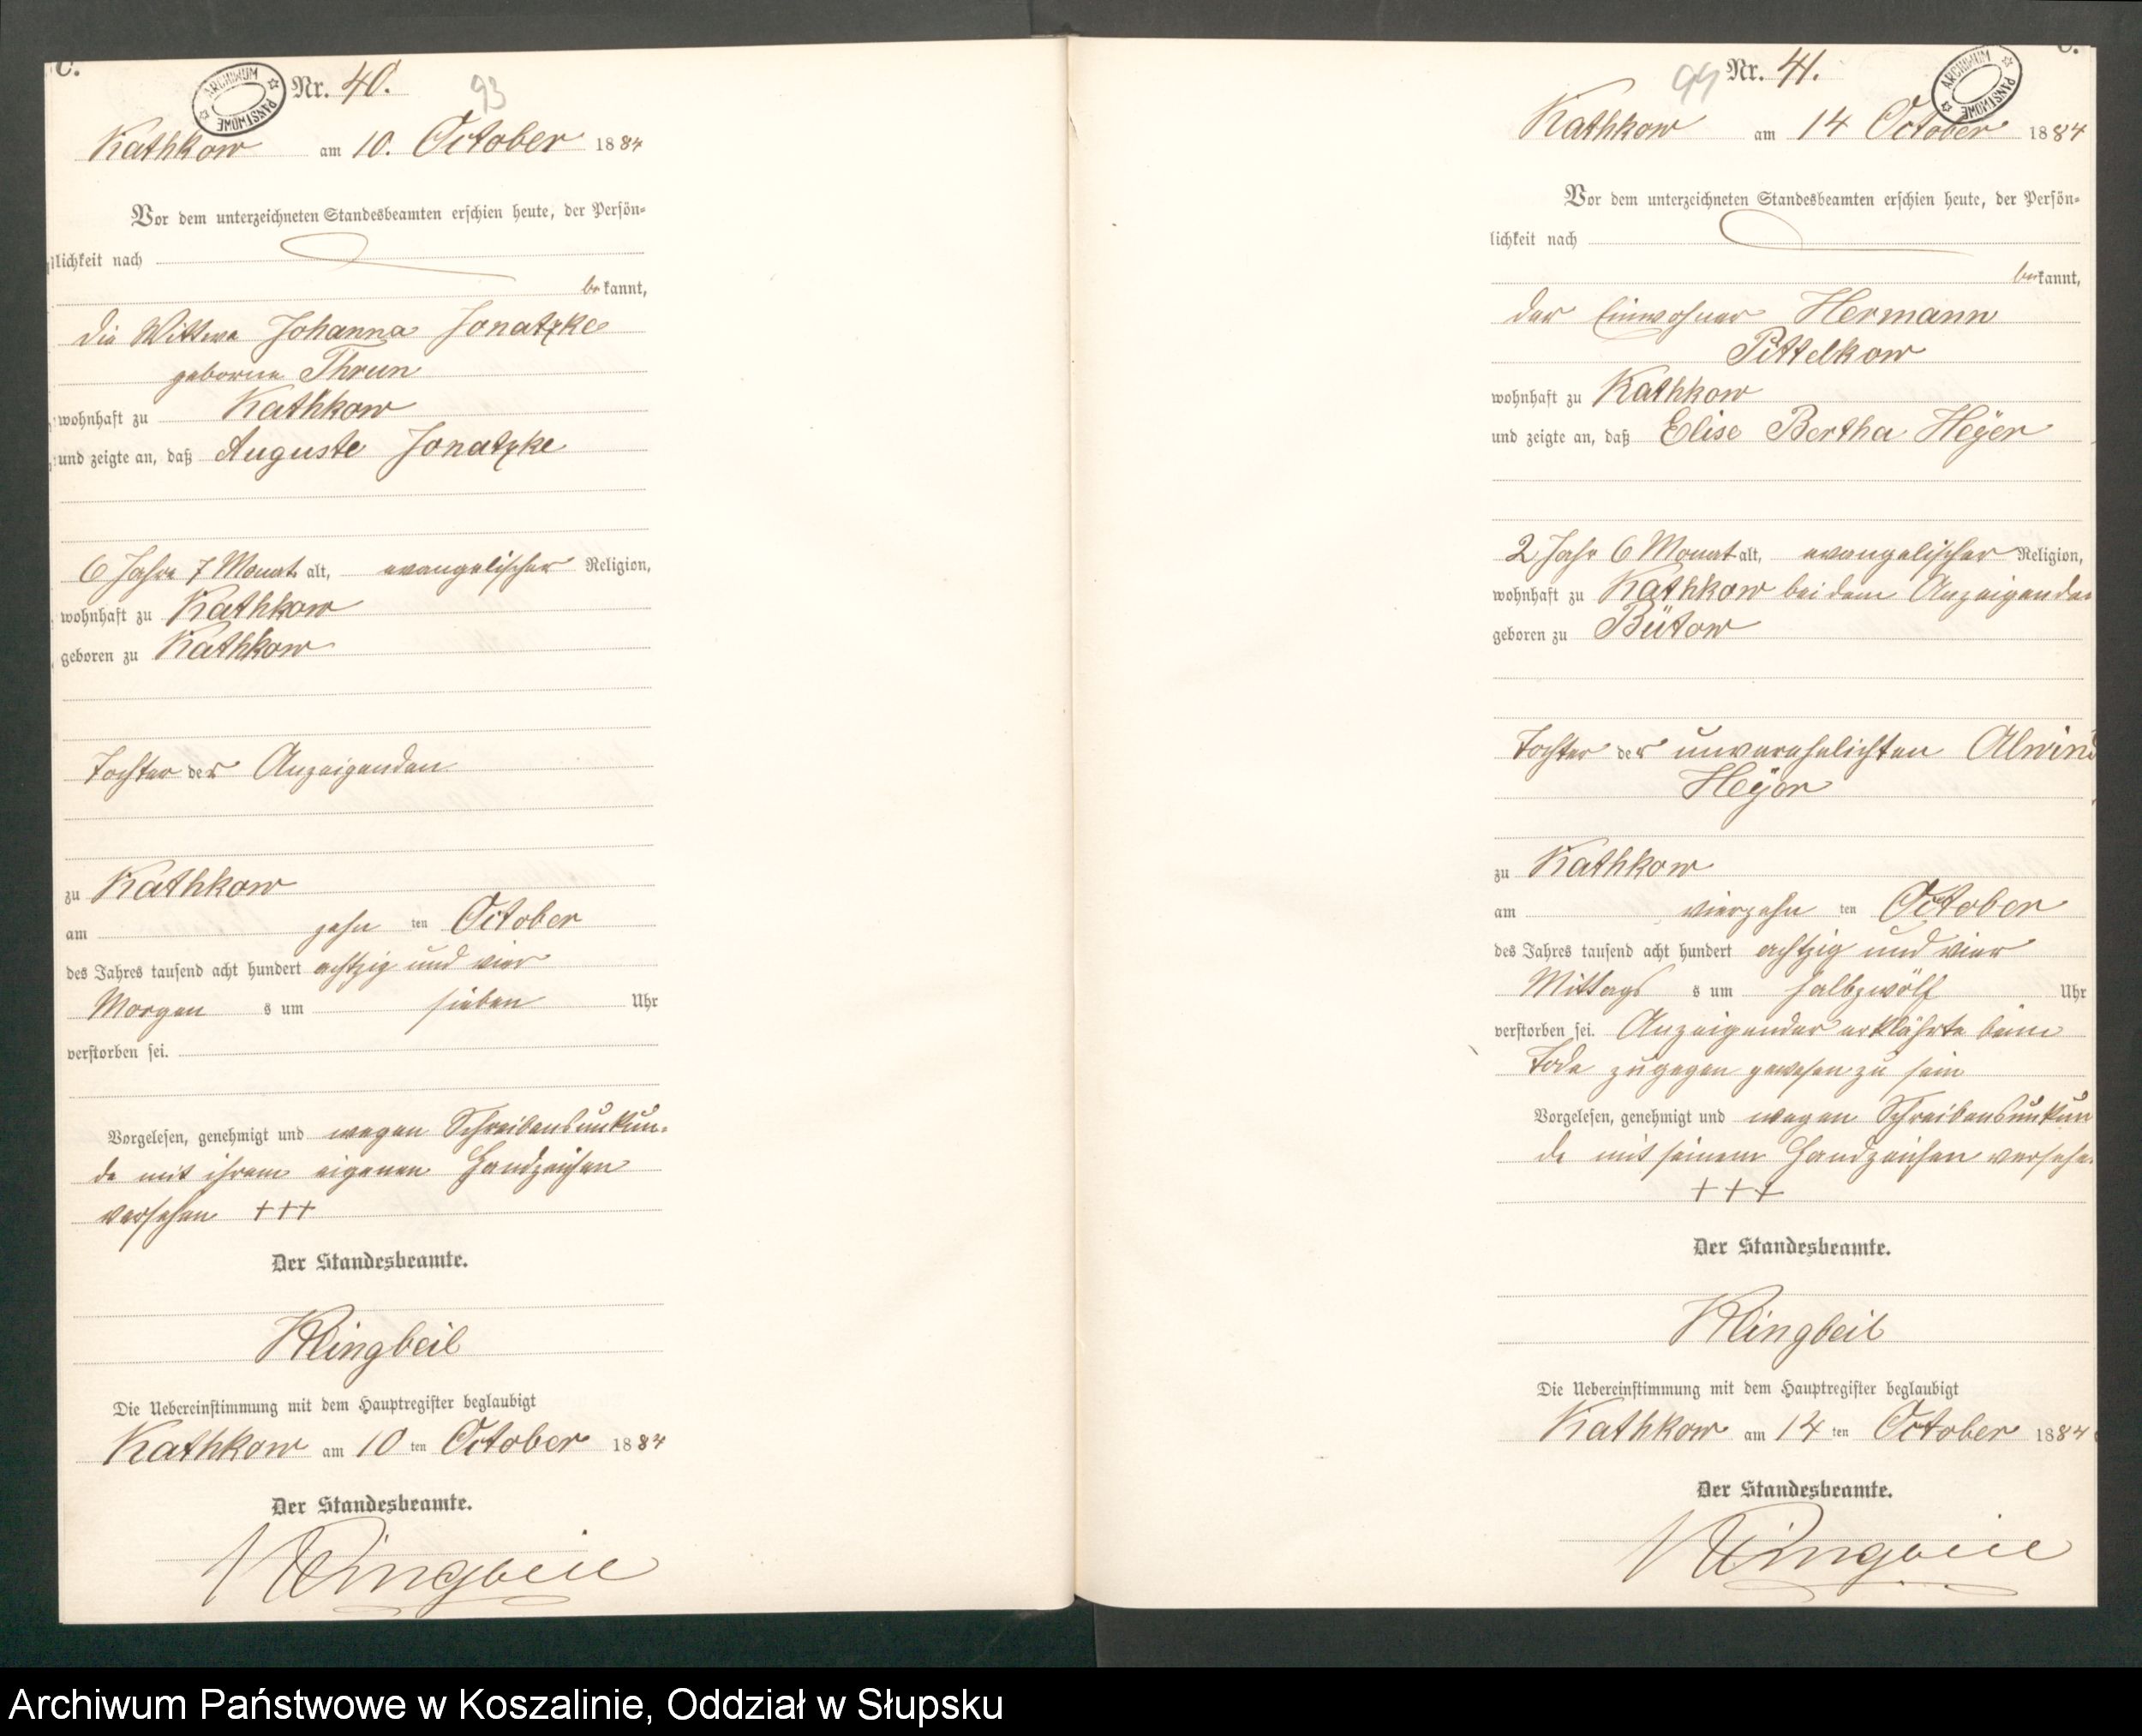 C.
ARCHIWUM PAŃSTWOWE
Nr. 40.
93
Kathkow am 10. October 1884
Vor dem unterzeichneten Standesbeamten erschien heute, der Persön-
lichkeit nach
bekannt,
die Wittwe Johanna Jonatzke
geborne Thrun
wohnhaft zu Kathkow
und zeigte an, daß Auguste Jonatzke
6 Jahre 7 Monat alt, evangelischer Religion,
wohnhaft zu Kathkow
geboren zu Kathkow
Tochter der Anzeigenden
zu Kathkow
am zehn ten October
des Jahres tausend acht hundert achtzig und vier
Morgen s um sieben Uhr
verstorben sei.
Vorgelesen, genehmigt und wegen Schreibensunkun-
de mit ihrem eigenen Handzeichen
versehen +++
Der Standesbeamte.
Klingbeil
Die Uebereinstimmung mit dem Hauptregister beglaubigt
Kathkow am 10 ten October 1884
Der Standesbeamte.
Klingbeil
C.
94
Nr. 41.
ARCHIWUM PAŃSTWOWE
Kathkow am 14 October 1884
Vor dem unterzeichneten Standesbeamten erschien heute, der Persön-
lichkeit nach
bekannt,
der Einwohner Hermann
Pittelkow
wohnhaft zu Kathkow
und zeigte an, daß Elise Bertha Heÿer
2 Jahr 6 Monat alt, evangelischer Religion,
wohnhaft zu Kathkow bei dem Anzeigenden
geboren zu Bütow
Tochter der unverehelichten Alwine
Heÿer
zu Kathkow
am vierzehn ten October
des Jahres tausend acht hundert achtzig und vier
Mittags s um halbzwölf Uhr
verstorben sei. Anzeigender erklährte beim
Tode zugegen gewesen zu sein
Vorgelesen, genehmigt und wegen Schreibensunkun
de mit seinem Handzeichen versehen
+++
Der Standesbeamte.
Klingbeil
Die Uebereinstimmung mit dem Hauptregister beglaubigt
Kathkow am 14 ten October 1884
Der Standesbeamte.
Klingbeil
Archiwum Państwowe w Koszalinie, Oddział w Słupsku